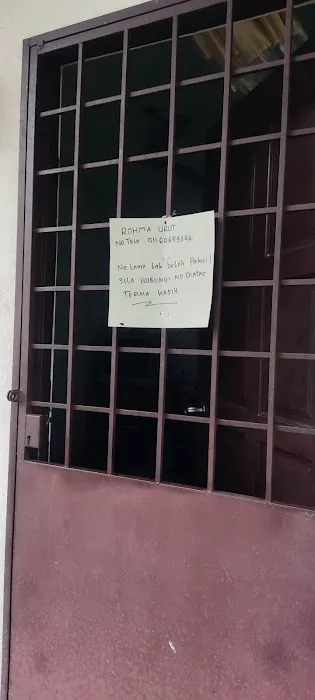 ROHMA URUT
NO TELP : 011 60659346
No Lama tak boleh Pakai!
SILA HUBUNGI NO DIATAS
TERIMA KASIH